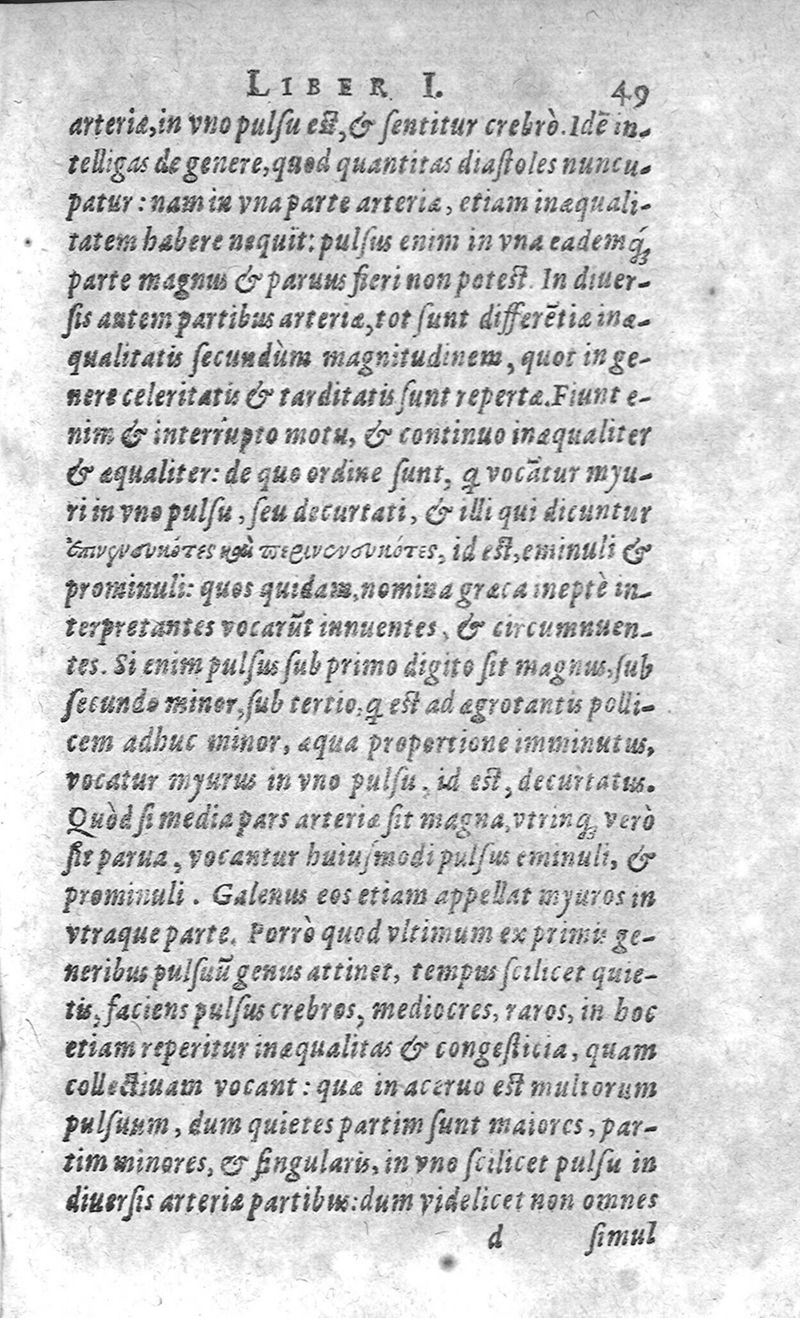 LIBER I. 49
arteriæ, in vno pulſu eſt, & ſentitur crebrò. Idē in-
telligas de genere, quod quantitas diaſtoles nuncu-
patur: nam in vna parte arteriæ, etiam inæquali-
tatem habere nequit: pulſus enim in vna eademq́;
parte magnus & paruus fieri non poteſt. In diuer-
ſis autem partibus arteriæ, tot ſunt differētiæ inæ-
qualitatis ſecundùm magnitudinem, quot in ge-
nere celeritatis & tarditatis ſunt repertæ. Fiunt e-
nim & interrupto motu, & continuo inæqualiter
& æqualiter: de quo ordine ſunt, q vocātur myu-
ri in vno pulſu, ſeu decurtati, & illi qui dicuntur
ἐπινενευκότες καὶ περινενευκότες, id eſt, eminuli &
prominuli: quos quidam, nomina græca ineptè in-
terpretantes vocarūt innuentes, & circumnuen-
tes. Si enim pulſus ſub primo digito ſit magnus, ſub
ſecundo minor, ſub tertio, q eſt ad ægrotantis polli-
cem adhuc minor, æqua proportione imminutus,
vocatur myurus in vno pulſu, id eſt, decurtatus.
Quòd ſi media pars arteriæ ſit magna, vtrinq; verò
ſit parua, vocantur huiuſmodi pulſus eminuli, &
prominuli. Galenus eos etiam appellat myuros in
vtraque parte. Porrò quod vltimum ex primis ge-
neribus pulſuū genus attinet, tempus ſcilicet quie-
tis, faciens pulſus crebros, mediocres, raros, in hoc
etiam reperitur inæqualitas & congeſticia, quam
collectiuam vocant: quæ in aceruo eſt multorum
pulſuum, dum quietes partim ſunt maiores, par-
tim minores, & ſingularis, in vno ſcilicet pulſu in
diuerſis arteriæ partibus: dum videlicet non omnes
d ſimul